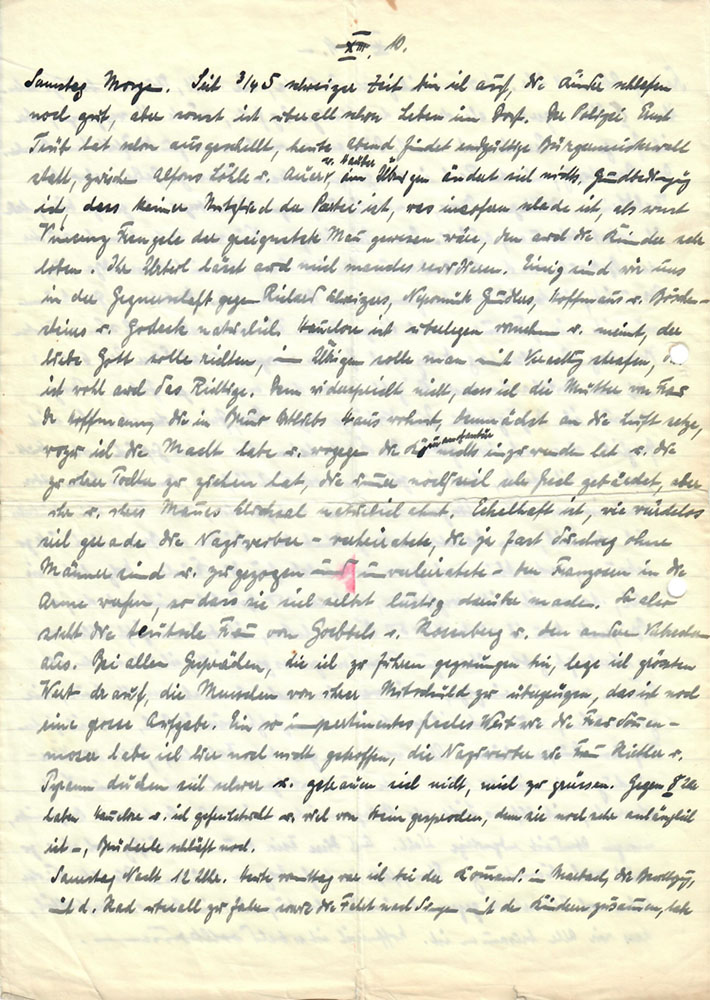 XIII. 10.
Samstag Morgen. Seit 3/4 5 schweizer Zeit bin ich auf, die Kinder schlafen
noch gut, aber sonst ist überall schon Leben im Dorf. Der Polizei Ernst
hat schon ausgeschellt, heute abend findet endgültige Bürgermeisterwahl
statt, zwischen Alfons Löhle u. Auer, u. im Übrigen ändert sich nichts. Grundbedingung
ist, dass keiner Mitglied der Partei ist, was insofern schade ist, als sonst
Vinzenz der geeignetste Mann gewesen wäre, den auch die Kinder sehr
loben. Ihr Urteil lässt auch mich manches revidieren. Einig sind wir uns
in der Gegnerschaft gegen Richard Nepomuk Hoffmanns u. Böschen-
steins u. Godeck natürlich. Hannelore ist überlegen u. meint, der
liebe Gott solle richten, im Übrigen solle man mit Verachtung strafen, das
ist wohl auch das Richtige. Dem widerspricht nicht, dass ich die Mutter von Frau
Dr. Hoffmann, die in Haus wohnt, demnächst an die Luft setze,
wozu ich die Macht habe u. wogegen die nichts einzuwenden hat u. die
zu ihrer Tochter zu ziehen hat, die immer noch sich sehr frech gebärdet, aber
ihr u. ihres Mannes Schicksal natürlich ahnt. Ekelhaft ist, wie würdelos
sich gerade die Naziweiber – verheiratete, die ja fast durchweg ohne
Männer sind u. zugezogen u. unverheiratete – den Franzosen in die
Arme werfen, so dass sie sich selbst lustig darüber machen. So also
sieht die deutsche Frau von Goebbels u. Rosenberg u. den anderen
aus. Bei allen Gesprächen, die ich zu führen gezwungen bin, lege ich grössten
Wert darauf, die Menschen von ihrer Mitschuld zu überzeugen, das ist noch
eine grosse Aufgabe. Ein so impertinentes freches Weib wie die Frau
habe ich hier noch nicht getroffen, die Naziweiber wie Frau u.
ducken sich schwer u. getrauen sich nicht, mich zu grüssen. Gegen
haben Hannelore u. ich gefrühstückt u. viel von Hein gesprochen, dem sie noch sehr anhänglich
ist –, Bruderle schläft noch.
Samstag Nacht 12 Uhr. Heute vormittag war ich bei der Komand. in Marbach,
mit d. Rad überall zu mit den Kindern zusammen, habe